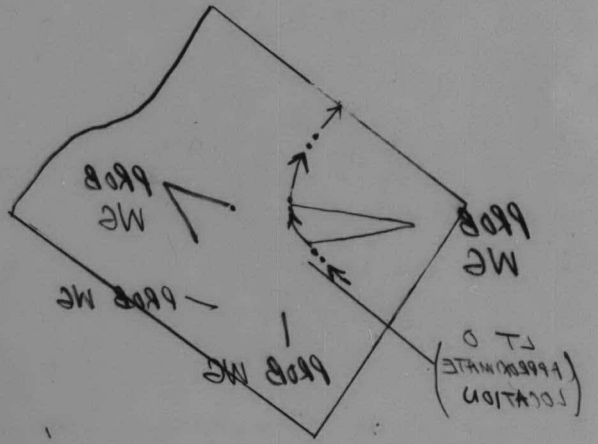 PROB
WG
PROB
WG
PROB WG
PROB WG
LT O
(APPROXIMATE
LOCATION)